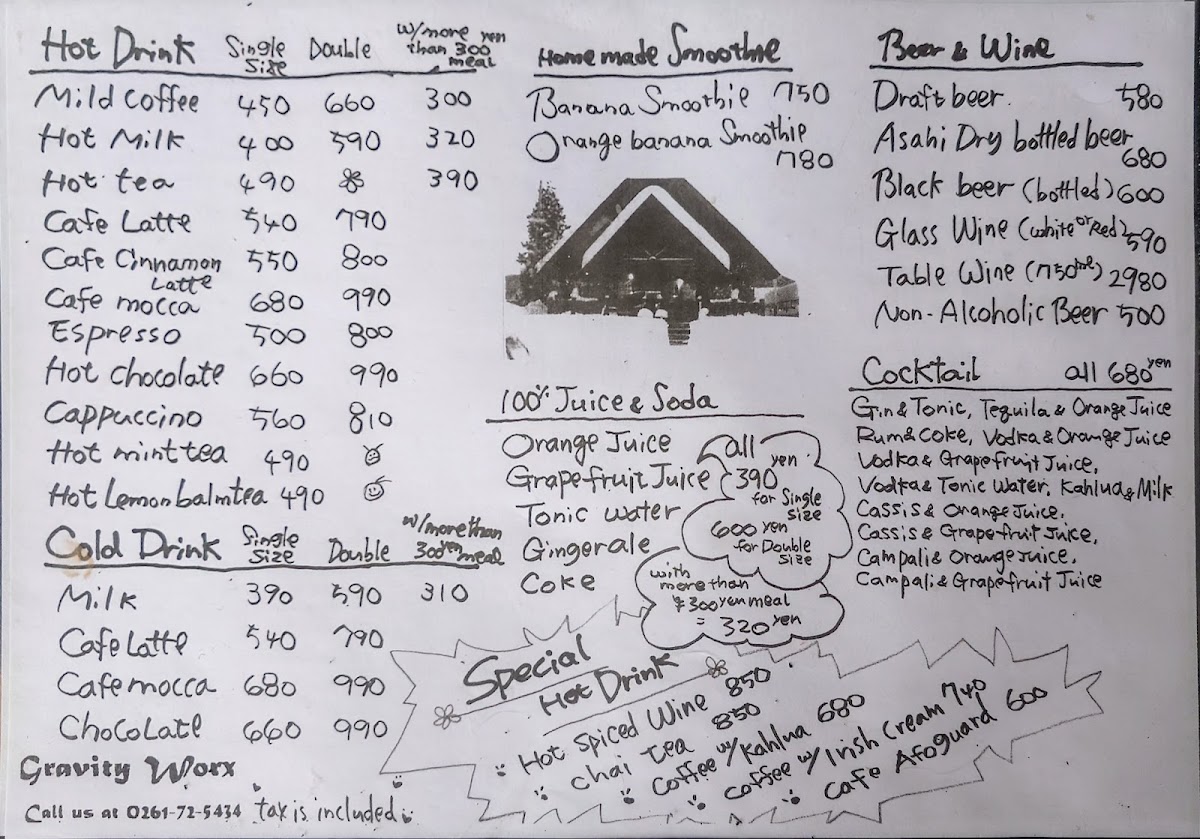 Hot Drink Single Size Double w/more than 300 yen meal
Mild coffee 450 660 300
Hot Milk 400 590 320
Hot tea 490 390
Cafe Latte 540 790
Cafe Cinnamon Latte 550 800
Cafe mocca 680 990
Espresso 500 800
Hot chocolate 660 990
Cappuccino 560 810
Hot mint tea 490
Hot Lemonbalm tea 490
Cold Drink Single Size Double w/more than 300 yen meal
Milk 390 590 310
Cafe Latte 540 790
Cafe mocca 680 990
Chocolate 660 990
Gravity Worx
Call us at 0261-72-5434 tax is included
Home made Smoothie
Banana Smoothie 750
Orange banana Smoothie
780
100% Juice & Soda
Orange Juice
Grapefruit Juice
Tonic water
Gingerale
Coke
all
390 yen
for Single
size
600 yen
for Double
size
with
more than
¥300 yen meal
= 320 yen
Special
Hot Drink
Hot Spiced Wine 850
chai tea 850
coffee w/Kahlua 680
coffee w/Irish Cream 740
cafe Afoguard 600
Beer & Wine
Draft beer. 580
Asahi Dry bottled beer
680
Black beer (bottled) 600
Glass Wine (white or Red) 590
Table Wine (750ml) 2980
Non-Alcoholic Beer 500
Cocktail all 680 yen
Gin & Tonic, Tequila & Orange Juice
Rum & Coke, Vodka & Orange Juice
Vodka & Grapefruit Juice,
Vodka & Tonic Water, Kahlua & Milk
Cassis & Orange Juice,
Cassis & Grapefruit Juice,
Campali & Orange Juice,
Campali & Grapefruit Juice